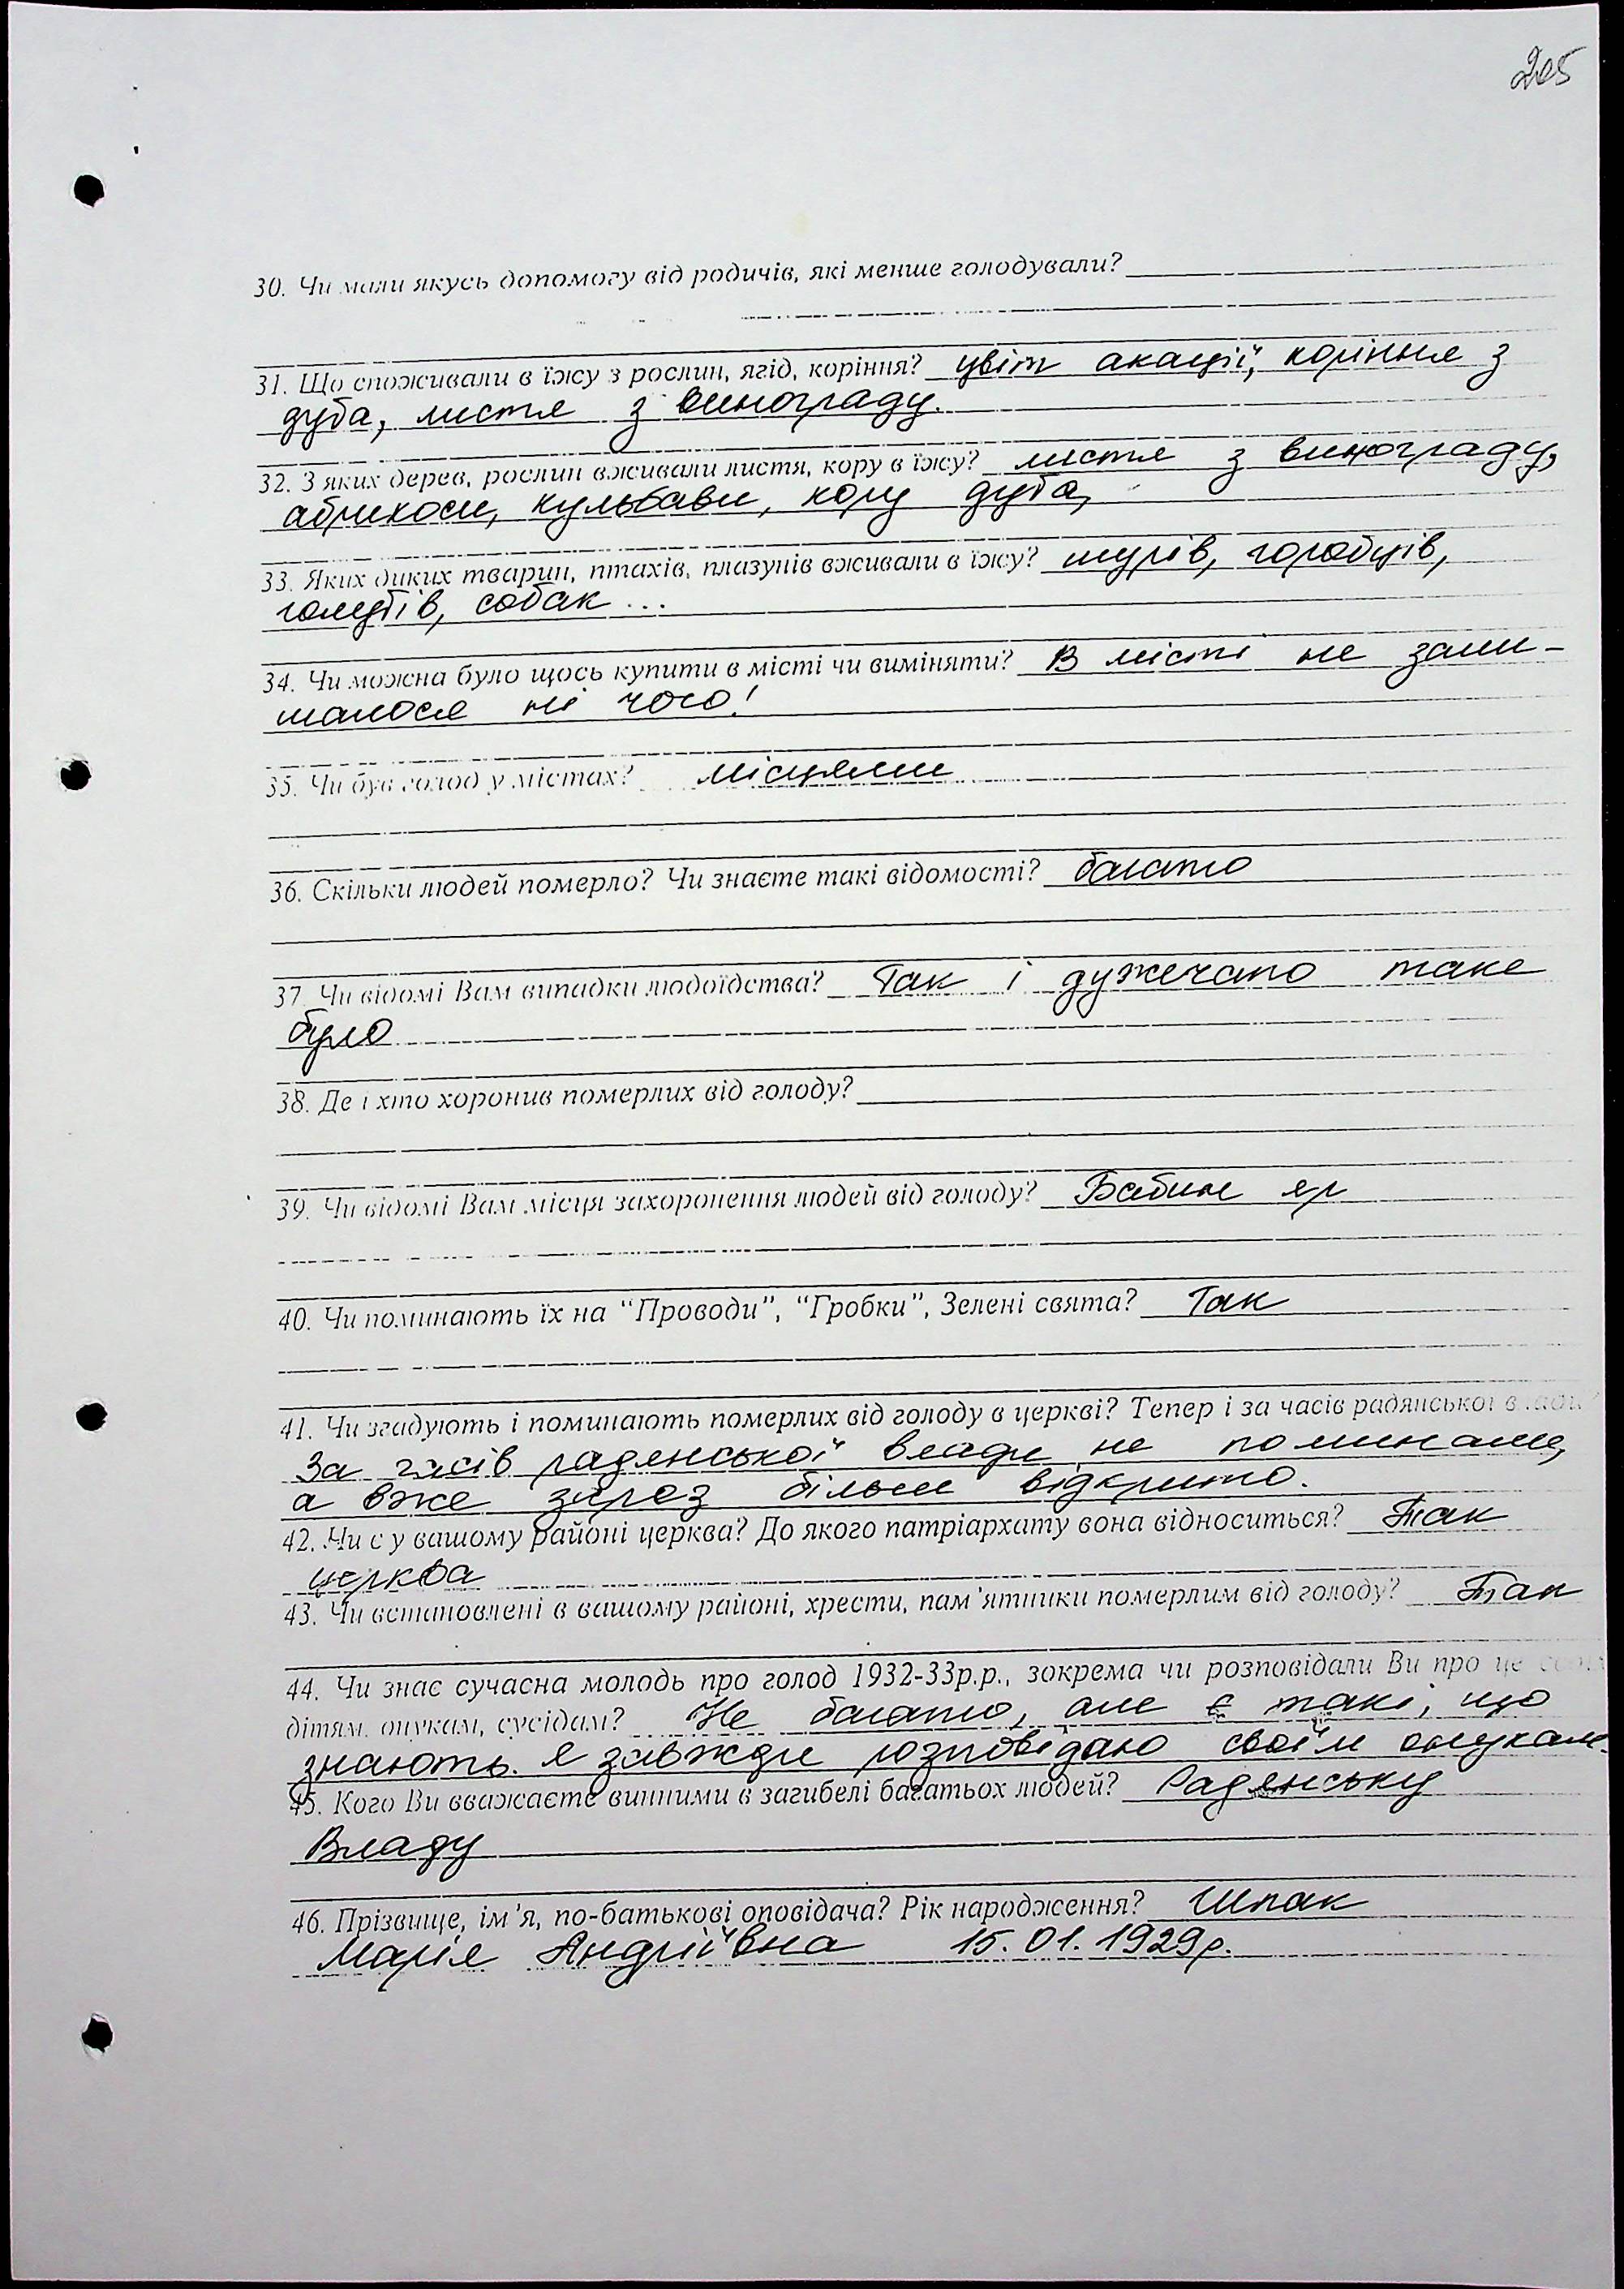 205
30. Чи мали якусь допомогу від родичів, які менше голодували?
31. Що споживали в їжу з рослин, ягід, коріння? цвіт акації, коріння з
дуба, листя з винограду.
32. З яких дерев, рослин вживали листя, кору в їжу? листя з винограду,
абрикоси, кульбави, кору дуба,
33. Яких диких тварин, птахів, плазунів вживали в їжу? щурів, горобців,
голубів, собак ...
34. Чи можна було щось купити в місті чи виміняти? В місті не зали-
шалося ні чого!
35. Чи був голод у містах? місцями
36. Скільки людей померло? Чи знаєте такі відомості? багато
37. Чи відомі Вам випадки людоїдства? Так і дужечато таке
було
38. Де і хто хоронив померлих від голоду?
39. Чи відомі Вам місця захоронення людей від голоду? Бабин яр
40. Чи поминають їх на "Проводи", "Гробки", Зелені свята? Так
41. Чи згадують і поминають померлих від голоду в церкві? Тепер і за часів радянської влади?
За часів радянської влади не поминали,
а вже зараз більш відкрито.
42. Чи є у вашому районі церква? До якого патріархату вона відноситься? Так
церква
43. Чи встановлені в вашому районі, хрести, пам'ятники померлим від голоду? Так
44. Чи знає сучасна молодь про голод 1932-33р.р., зокрема чи розповідали Ви про це своїм
дітям, онукам, сусідам? Не багато, але є такі, що
знають. Я завжди розповідаю своїм онукам.
45. Кого Ви вважаєте винними в загибелі багатьох людей? Радянську
Владу
46. Прізвище, ім'я, по-батькові оповідача? Рік народження? Шпак
Марія Андріївна 15.01.1929р.